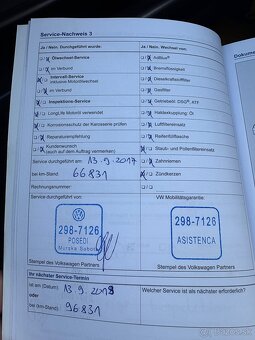 Service-Nachweis 3
Ja / Nein Durchgeführt wurde:
Ja / Nein Wechsel von:
Ölwechsel-Service
AdBlue®
im Verbund
Bremsflüssigkeit
Intervall-Service
inklusive Motorölwechsel
Dieselkraftstofffilter
im Verbund
Gasfilter
Inspektions-Service
Getriebeöl: DSG®, ATF
LongLife Motoröl verwendet
Haldexkupplung: Öl
Korrosionsschutz der Karosserie prüfen
Luftfiltereinsatz
Reparaturempfehlung
Reifenfüllflasche
Kundenwunsch
(auch auf dem Auftrag vermerken)
Staub- und Pollenfiltereinsatz
Service durchgeführt am: 13.9.2017
Zahnriemen
bei km-Stand: 66831
Zündkerzen
Rechnungsnummer:
Service durchgeführt von:
VW Mobilitätsgarantie:
298-7126
POSEDI
Murska Sobota
298-7126
ASISTENCA
Stempel des Volkswagen Partners
Stempel des Volkswagen Partners
Ihr nächster Service-Termin
ist am (Datum): 13.9.2018
Welcher Service ist als nächster erforderlich?
oder
bei (km-Stand): 96831
Dokume